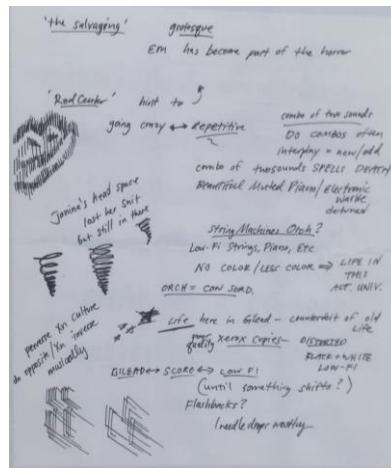 'the salvaging' grotesque
Em has become part of the horror
'Red Center' hint to
going crazy ↔ Repetitive
combo of two sounds
DO COMBOS often
interplay = new/odd
combo of two sounds SPELLS DEATH
Beautiful Muted Piano/Electronic
detuned
Janine's head space
lost her shit
but still in there
String Machines Orch?
Low-Fi Strings, Piano, Etc
NO COLOR/LESS COLOR ⇒ LIFE IN
THIS
ALT. UNIV.
ORCH = CON SORD.
Life here in Gilead - counterfeit of old
Life
perverse Xn culture
do opposite/Xn inverse
musically
quality Xerox Copies - DISTORTED
BLACK + WHITE
LOW-FI
GILEAD ↔ SCORE ↔ LOW FI
(until something shifts?)
Flashbacks?
(needle drops worthy